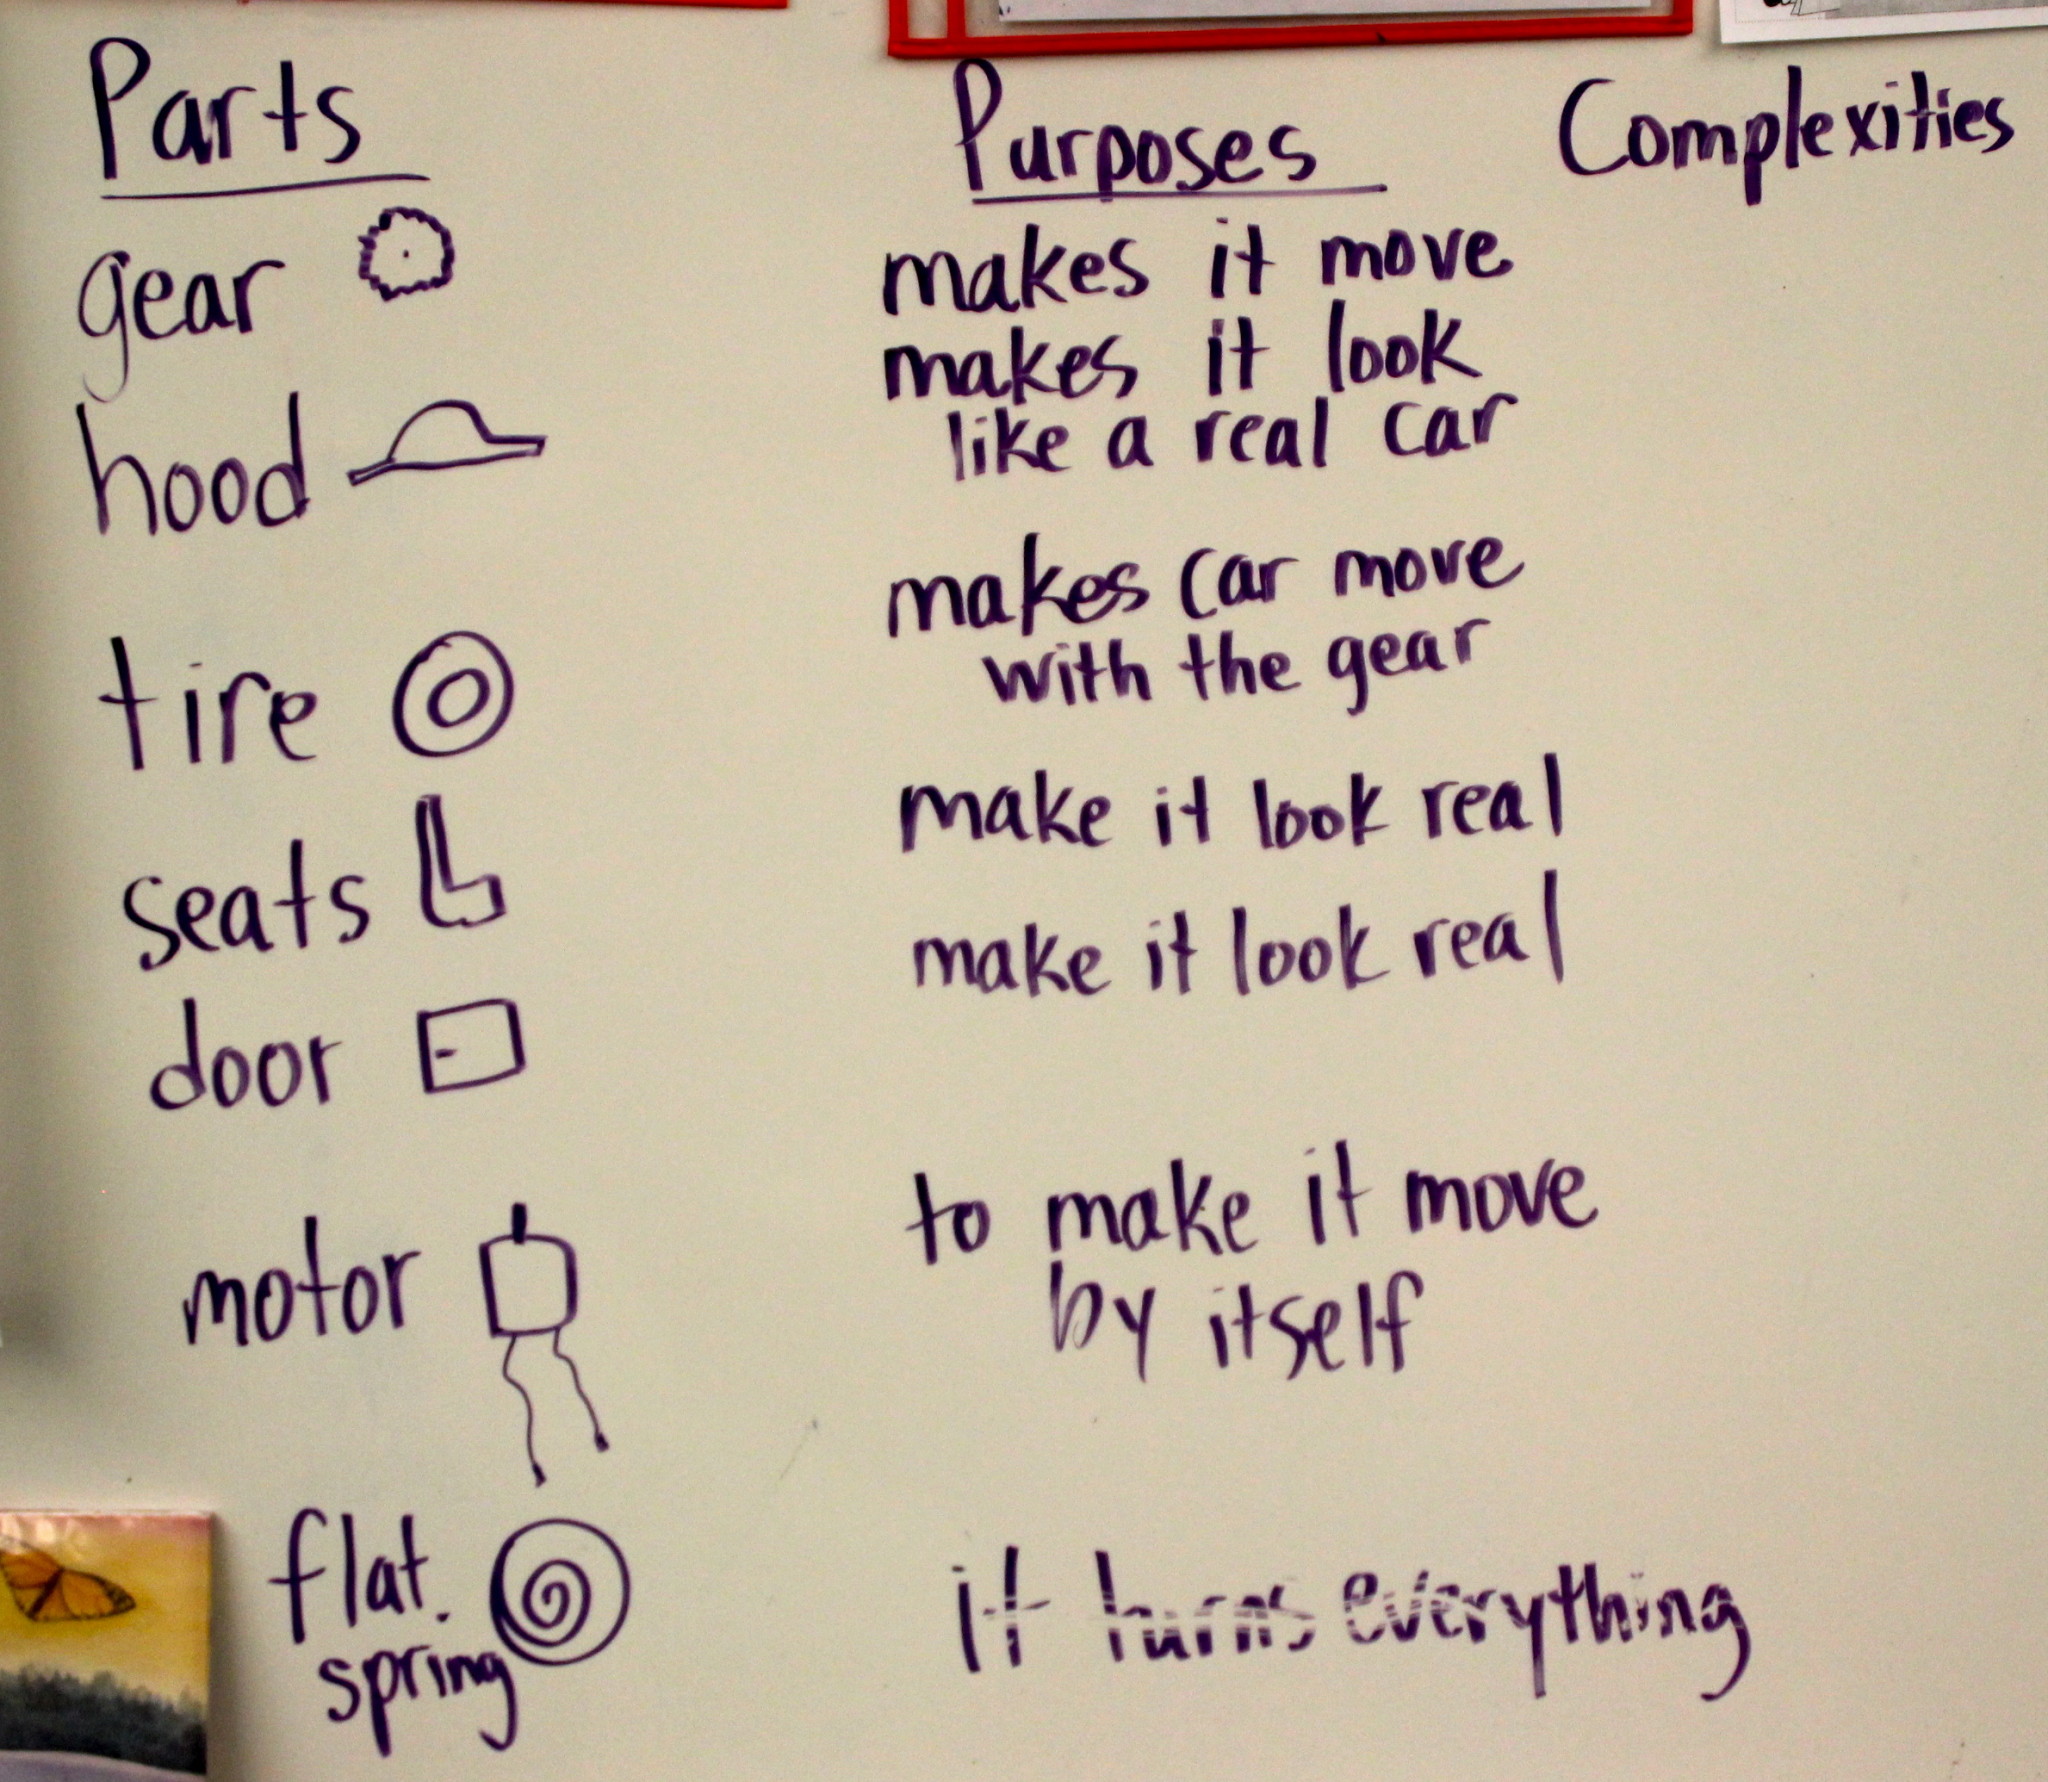 Parts Purposes Complexities
gear makes it move
hood makes it look
like a real car
tire makes car move
with the gear
seats make it look real
door make it look real
motor to make it move
by itself
flat it turns everything
spring